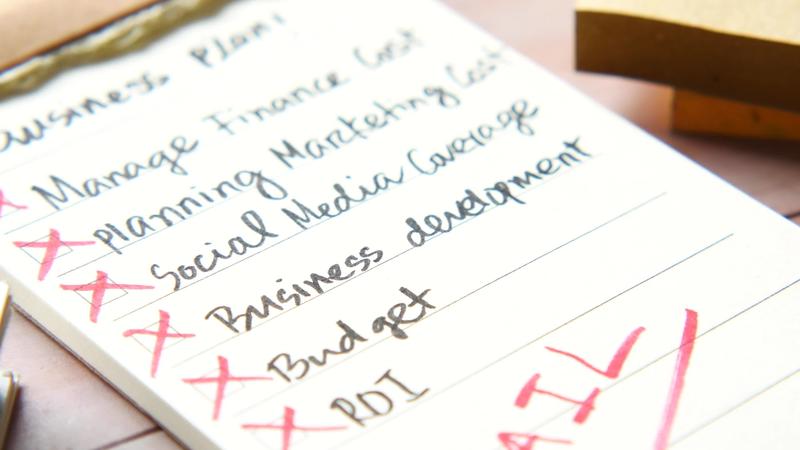 Business Plan!
Manage Finance Cost
planning Marketing Cost
Social Media Coverage
Business development
Budget
ROI
AIL